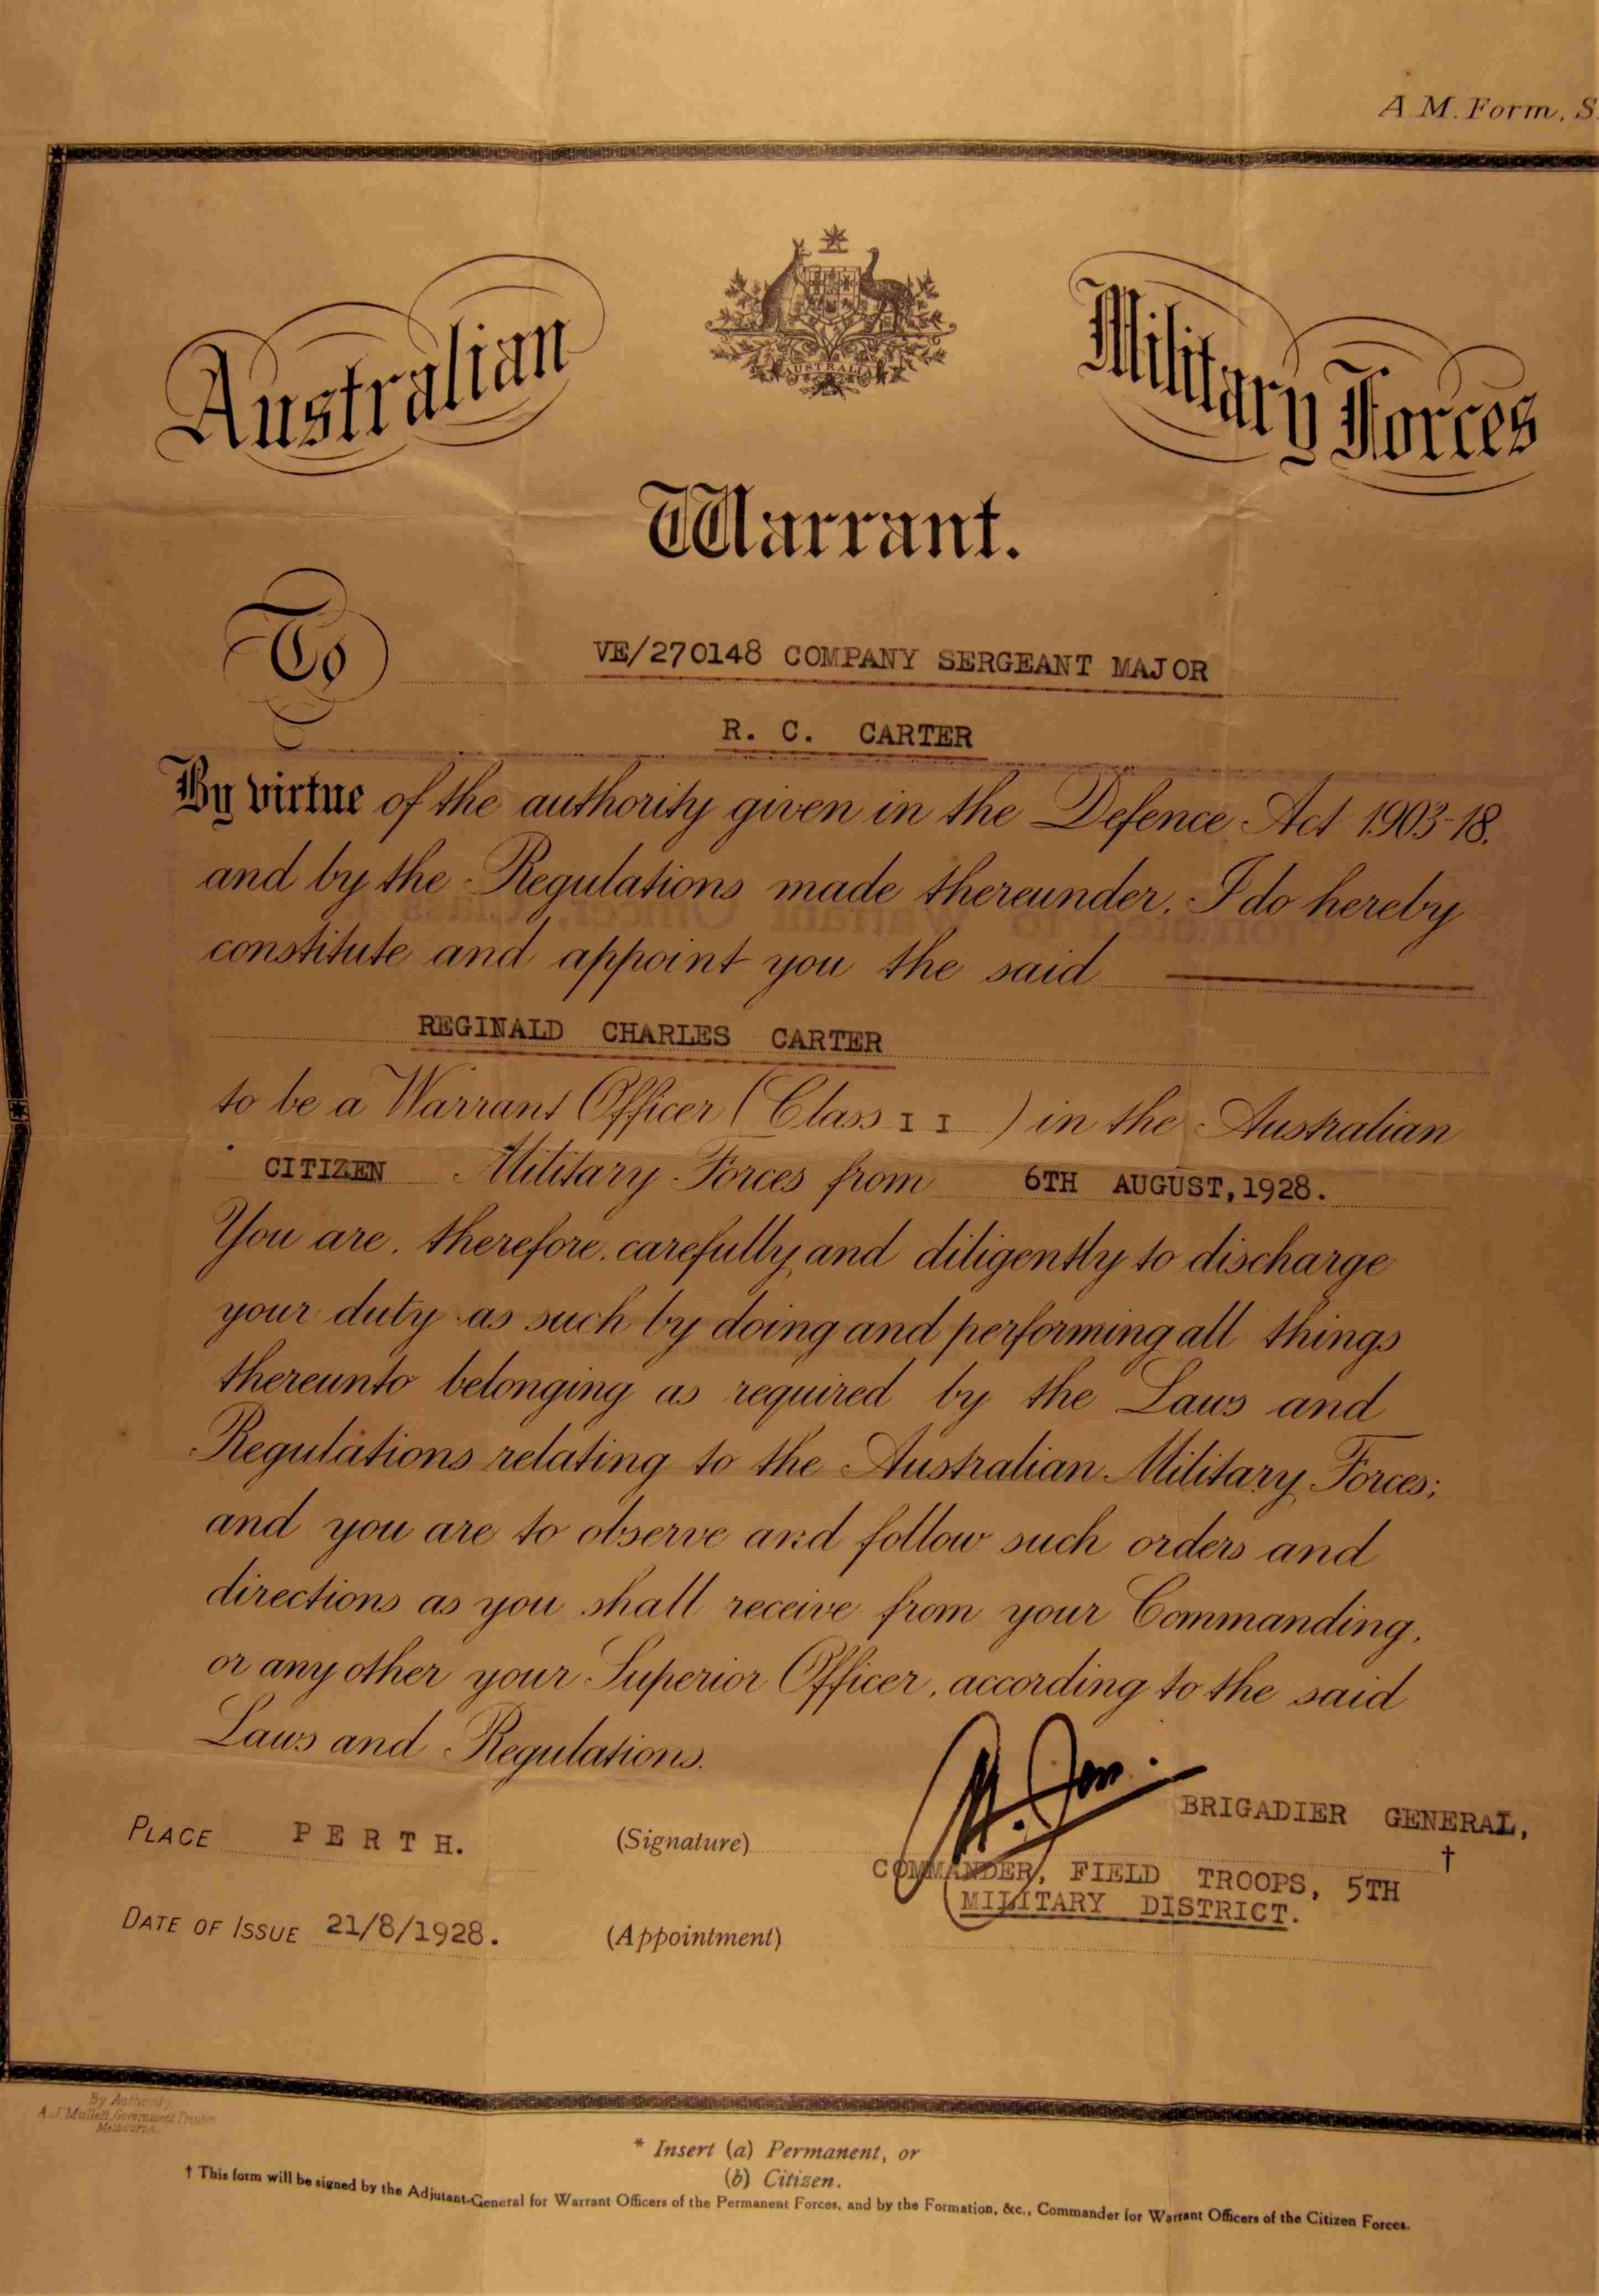 A.M. Form, S.
AUSTRALIA
Australian Military Forces
Warrant.
To VE/270148 COMPANY SERGEANT MAJOR
R. C. CARTER
By virtue of the authority given in the Defence Act 1903-18.
and by the Regulations made thereunder, I do hereby
constitute and appoint you the said
REGINALD CHARLES CARTER
to be a Warrant Officer (Class II) in the Australian
CITIZEN Military Forces from 6TH AUGUST, 1928.
You are, therefore, carefully and diligently to discharge
your duty as such by doing and performing all things
thereunto belonging as required by the Laws and
Regulations relating to the Australian Military Forces;
and you are to observe and follow such orders and
directions as you shall receive from your Commanding,
or any other your Superior Officer, according to the said
Laws and Regulations.
PLACE PERTH. (Signature) BRIGADIER GENERAL, †
COMMANDER, FIELD TROOPS, 5TH
MILITARY DISTRICT.
DATE OF ISSUE 21/8/1928. (Appointment)
By Authority:
A.J. Mullett, Government Printer
Melbourne.
* Insert (a) Permanent, or
(b) Citizen.
† This form will be signed by the Adjutant-General for Warrant Officers of the Permanent Forces, and by the Formation, &c., Commander for Warrant Officers of the Citizen Forces.